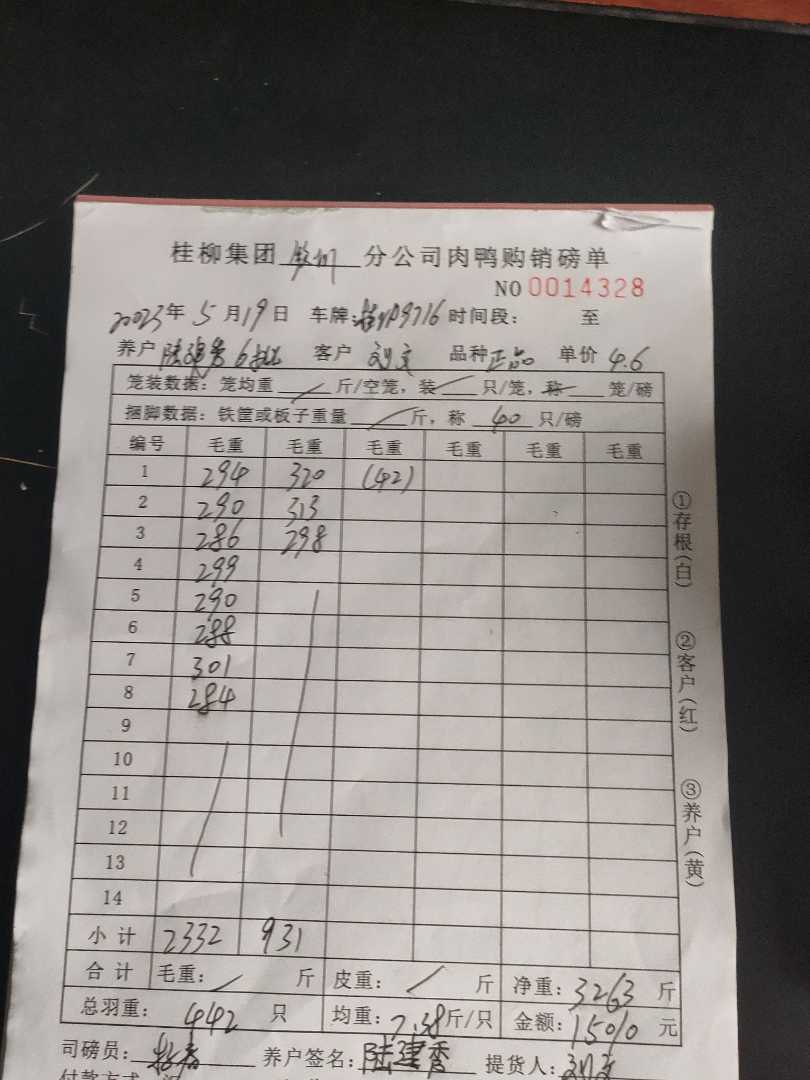 桂柳集团 钦州 分公司肉鸭购销磅单
NO 0014328
2023年 5月19日 车牌: 9716 时间段: 至
养户 陆建秀 6批 客户 刘文 品种 正品 单价 4.6
笼装数据: 笼均重 / 斤/空笼, 装 / 只/笼, 称 笼/磅
捆脚数据: 铁筐或板子重量 / 斤, 称 40 只/磅
编号 毛重 毛重 毛重 毛重 毛重 毛重
1 294 320 (42)
2 290 313
3 286 298
4 299
5 290
6 288
7 301
8 284
9
10
11
12
13
14
小计 2332 931
合计 毛重: / 斤 皮重: / 斤 净重: 3263 斤
总羽重: 442 只 均重: 7.38 斤/只 金额: 15010 元
司磅员: 养户签名: 陆建秀 提货人: 刘文
付款方式
①存根(白)
②客户(红)
③养户(黄)